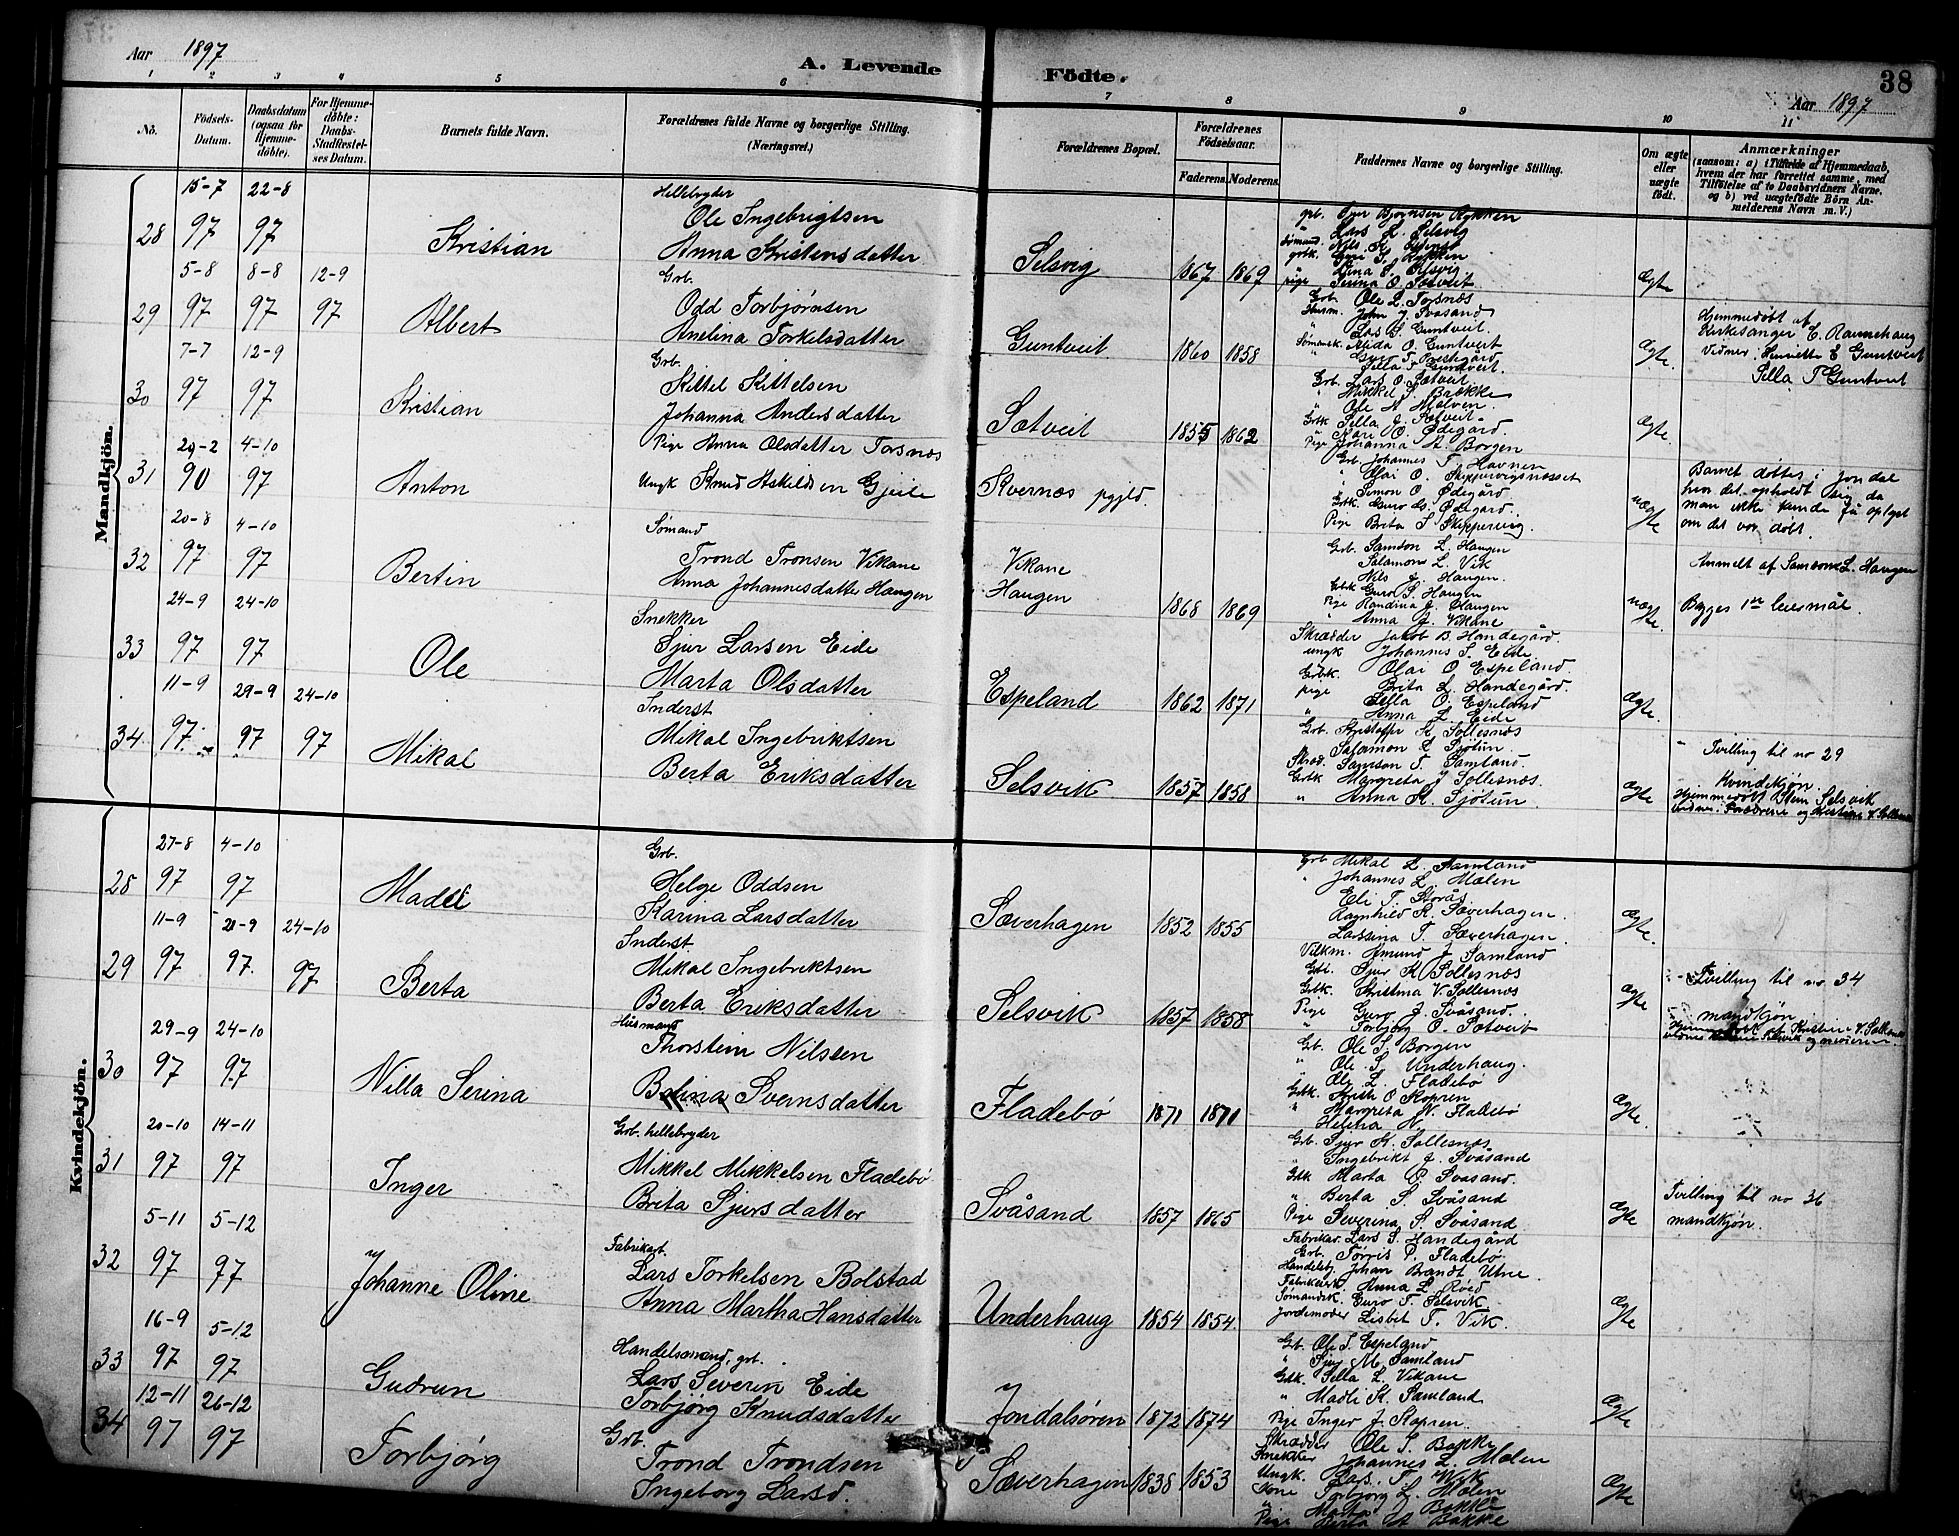 Aar 1897
A. Levende Födte.
38
Aar 1897
1 2 3 4 5 6 7 8 9 10 11
No. Födsels-Datum. Daabsdatum (ogsaa for Hjemmedöbte). For Hjemmedöbte: Daabs-Stadfæstelses Datum. Barnets fulde Navn. Forældrenes fulde Navne og borgerlige Stilling. (Næringsvei.) Forældrenes Bopæl. Forældrenes Födselsaar. Faderens. Moderens. Faddernes Navne og borgerlige Stilling. Om ægte eller uægte födt. Anmærkninger (saasom: a) i Tilfælde af Hjemmedaab, hvem der har forrettet samme, med Tilföielse af to Daabsvidners Navne, og b) ved uægtefödte Börn Anmelderens Navn m. V.)
Mandkjön.
28 15-7 97 22-8 97 Kristian
Hellebryder
Ole Ingebrigtsen
Anna Kristensdatter
Selsvig 1867 1869
Lars L. Selsvig
Ægte
29 5-8 97 8-8 97 12-9 97 Albert
Grb.
Odd Torbjørnsen
Anelina Torkelsdatter
Guntveit 1860 1858
Grb. Ole L. Torsnæs
John J. Svåsand
Lars S. Guntveit.
Alida O. Guntveit
Sella T. Guntveit.
Ægte.
Hjemmedøbt af
Kirkesanger E. Ravnehaug
Vidner: Henriette E Guntveit
Sella T Guntveit
30 7-7 97 12-9 97 Kristian
Grb.
Kittel Kittelsen
Johanna Andersdatter
Sætveit 1855 1862
Grb. Lars O. Sætveit
Mikkel S. Brække
Ole A Mælen.
Grbk Sella J. Sætveit
Kari O. Ødegård.
Pige Johanna A. Borgen
Ægte.
31 29-2 90 4-10 97 Anton
Pige Anna Olsdatter Torsnæs
Ungk Knud Askildsen Gjeile
Kvernæs pgjld.
Grb. Johannes T. Havnen
Olai O. Skippervigsnæsset
Simon O. Ødegård
Grbk. Guro G. Ødegård.
Pige Brita S Skippervig.
uægte
Barnet døbtes i Jondal
hvor det opholdt sig da
man ikke kunde få oplyst
om det var døbt.
32 20-8 97 4-10 97 Bertin
Sømand
Trond Tronsen Vikane
Anna Johannesdatter Haugen
Vikane
Haugen 1868 1869
Grb. Samson L. Haugen
Salamon L. Vik
Nils J. Haugen.
Grbk Guro S. Haugen
Pige Randina J. Haugen
" Anna J. Vikane
uægte.
Anmelt af Samson L. Haugen
Begges 1ste leiermål.
33 24-9 97 24-10 97 Ole
Snekker
Sjur Larsen Eide
Marta Olsdatter
Espeland 1862 1871
Skrædder Jakob B. Handegård.
ungk Johannes S. Eide
Olai O. Espeland
Grbk. Brita L. Handegård.
pige Sella O. Espeland
" Anna L. Eide
Ægte.
34 11-9 97 29-9 97 24-10 97 Mikal
Inderst
Mikal Ingebriktsen
Berta Eriksdatter
Selsvik 1857 1858
Grb. Kristoffer K. Sollesnæs
Salamon E. Sjøtun.
Skræd. Samson T. Samland.
Grbk Margreta J Sollesnæs.
" Anna K. Sjøtun
Ægte
Tvilling til no 29
Kvindekjøn.
Kvindekjön.
28 27-8 97 4-10 97 Madel
Grb.
Helge Oddsen
Karina Larsdatter
Sæverhagen 1852 1855
Grb Mikal L. Samland
" Johannes L. Mælen
Eli T. Storås.
Ragnhild K. Sæverhagen.
Larssina T. Sæverhagen.
Ægte.
29 11-9 97 29-9 97. 24-10 97 Berta
Inderst.
Mikal Ingebriktsen
Berta Eriksdatter
Selsvik 1857 1858
Vilkm. Amund J Samland
Grb. Sjur K. Sollesnæs
Grbk. Kristina V. Sollesnæs
Pige Guro J. Svåsand.
" Torbjørg O. Sætveit
Ægte
Tvilling til no 34
mandkjøn
30 29-9 97 24-10 97 Nilla Serina
Husmand
Thorstein Nilssen
Bolina Svensdatter
Fladebø 1871 1871
Gb. Ole S. Borgen
" Ole S. Underhaug.
" Ole L. Fladebø
Grbk. Kristi O. Kopren
" Margreta N. Fladebø
Helena N.
Ægte.
31 20-10 97 14-11 97 Inger
Grb. hellebryder
Mikkel Mikkelsen Fladebø
Brita Sjursdatter
Svåsand 1857 1865
Grb. Sjur K. Sollesnæs
" Ingebrikt J. Svåsand
Gbk Marta O. Svåsand.
" Berta S. Svåsand
Pige Severina S. Svåsand
Ægte
Tvilling til no 36
mandkjøn.
32 5-11 97 5-12 97 Johanne Oline
Fabrikarb.
Lars Torkelsen Bolstad
Anna Martha Hansdatter
Underhaug 1854 1854.
Fabrikar. Lars S. Handegård
Grb. Tørris P. Fladebø
Handelsbj. Johan Brandt Utne.
Anna L. Røed
Sømandsk. Guro T. Selsvik
Jordemoder Lisbet T. Vik.
Ægte
33 16-9 97 5-12 97 Gudrun
Handelsmand, grb.
Lars Severin Eide
Torbjørg Knudsdatter
Jondalsøren 1872 1874
Grb. Ole S. Espeland
" Sjur M. Samland
Gbk. Sella L. Vikane
" Madli K. Samland
Pige Inger J. Kopren.
Ægte
34 12-11 97 26-12 97 Torbjørg
Grb.
Trond Trondsen
Ingeborg Larsd.
Sæverhagen 1838 1853
Skrædder Ole S. Bakke
Snekker Johannes L. Mælen
Ungk. Lars T. Vik
Kone Torbjørg L. Mælen
" Marta Bakke
Pige Berta A Bakke
Ægte